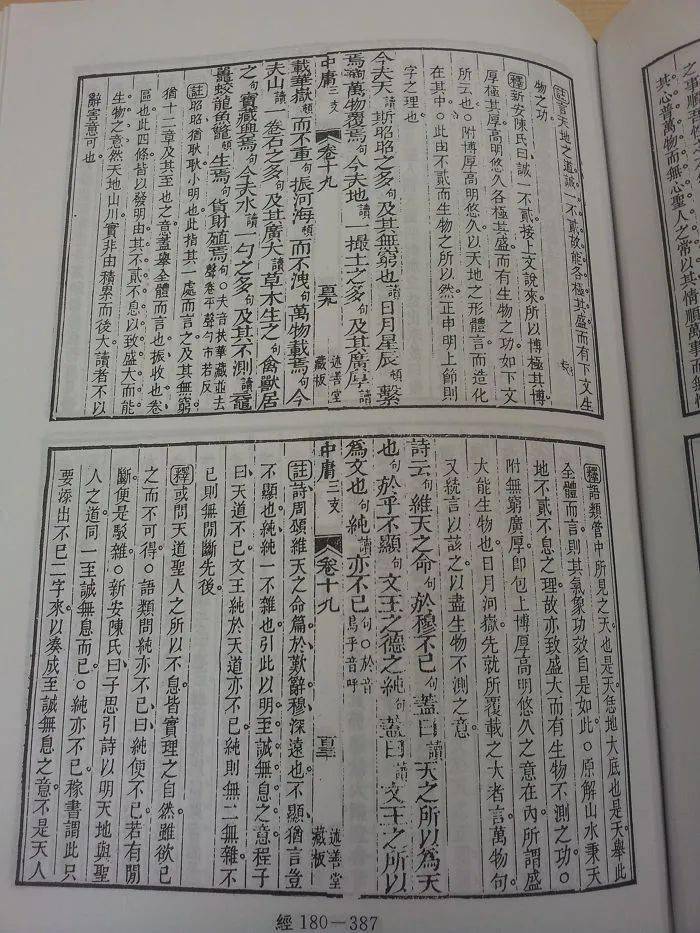 其心普萬物而無心聖人之常以其情順萬事而無
註言天地之道誠一不貳故能各極其盛而有下文生
物之功。
釋新安陳氏曰誠一不貳接上文說來所以博極其博
厚極其厚高明悠久各極其盛而有生物之功如下文
所云也○附博厚高明悠久以天地之形體言而造化
在其中○此由不貳而生物之所以然正申明上節則
字之理也
今夫天讀斯昭昭之多句及其無窮也讀日月星辰頓繫
焉句萬物覆焉句今夫地讀一撮土之多句及其廣厚讀
中庸三支 卷十九 述善堂藏板
載華嶽頓而不重句振河海頓而不洩句萬物載焉句今
夫山讀一卷石之多句及其廣大讀草木生之句禽獸居
之句寶藏興焉句今夫水讀一勺之多句及其不測讀黿
鼉蛟龍魚鼈頓生焉句貨財殖焉句○夫音扶華藏並去聲卷平聲勺市若反
註昭昭猶耿耿小明也此指其一處而言之及其無窮
猶十二章及其至也之意蓋舉全體而言也振收也卷
區也此四條皆以發明由其不貳不息以致盛大而能
生物之意然天地山川實非由積累而後大讀者不以
辭害意可也。
釋語類管中所見之天也是天恁地大底也是天舉此
全體而言則其氣象功效自是如此○原解山水秉天
地不貳不息之理故亦致盛大而有生物不測之功○
附無窮廣厚即包上博厚高明悠久之意在內所謂盛
大能生物也日月河嶽先就所覆載之大者言萬物句
又統言以該之以盡生物不測之意。
詩云句維天之命句於穆不已句蓋曰讀天之所以為天
也句於乎不顯句文王之德之純句蓋曰讀文王之所以
為文也句純讀亦不已句○於音烏乎音呼
中庸三支 卷十九 述善堂藏板
註詩周頌維天之命篇於歎辭穆深遠也不顯猶言豈
不顯也純純一不雜也引此以明至誠無息之意程子
曰天道不已文王純於天道亦不已純則無二無雜不
已則無閒斷先後。
釋或問天道聖人之所以不息皆實理之自然雖欲已
之而不可得○語類問純亦不已曰純便不已若有閒
斷便是駁雜○新安陳氏曰子思引詩以明天地與聖
人之道同一至誠無息而已○純亦不已稼書謂此只
要添出不已二字來以湊成至誠無息之意不是天人
經180－387